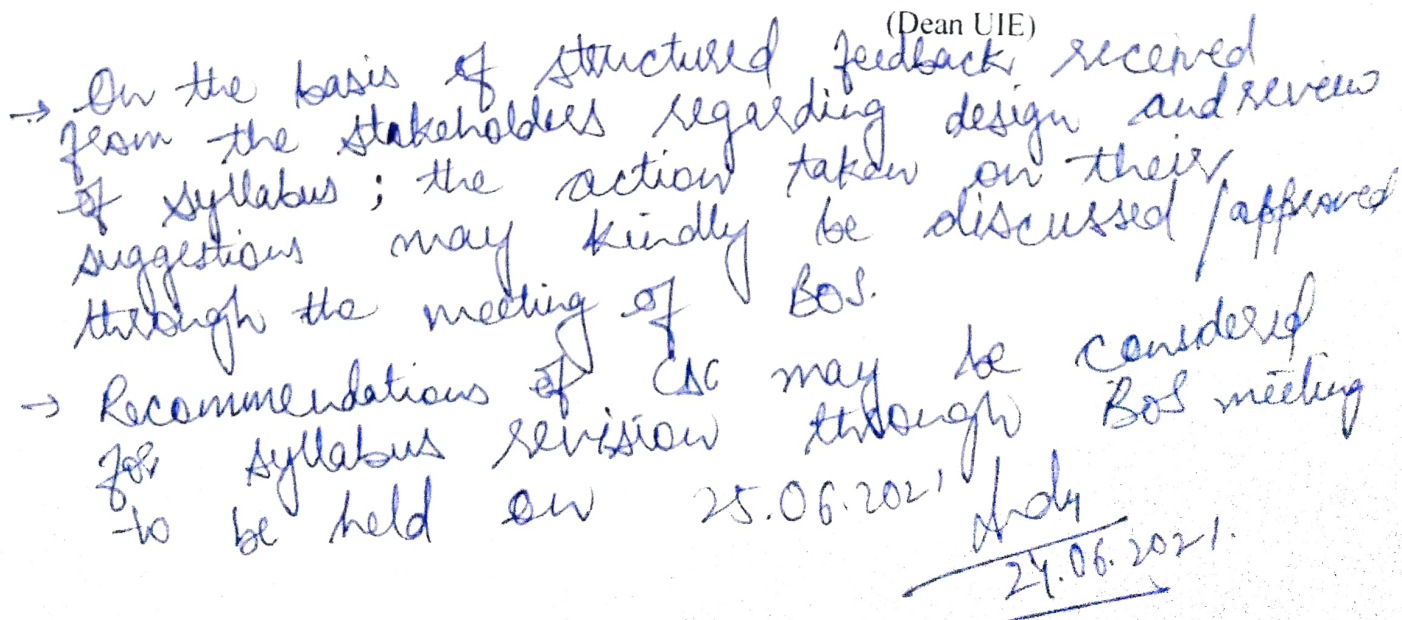 (Dean UIE)
→ On the basis of structured feedback received
from the stakeholders regarding design and review
of syllabus; the action taken on their
suggestions may kindly be discussed/approved
through the meeting of BOS.
→ Recommendations of CAC may be considered
for syllabus revision through BOS meeting
to be held on 25.06.2021
24.06.2021.